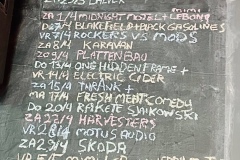 MIMI
ZA 1/4 MIDNIGHT MOTEL + LEBON
BLAKEFIELD + BACK GASOLINES
VR 7/4 ROCKERS VS MODS
ZA 8/4 KARAVAN
ZO 9/4 PLATTENBAU
DO 13/4 ONE HIDDEN FRAME +
VR 14/4 ELECTRIC CIDER
ZA 15/4
MA 17/4 FRESH MEAT COMEDY
DO 20/4 RAKETE SJAIKOWSKI
ZA 22/4 HARVESTERS
VR 28/4 MOTUS AUDIO
ZA 29/4 SKODA